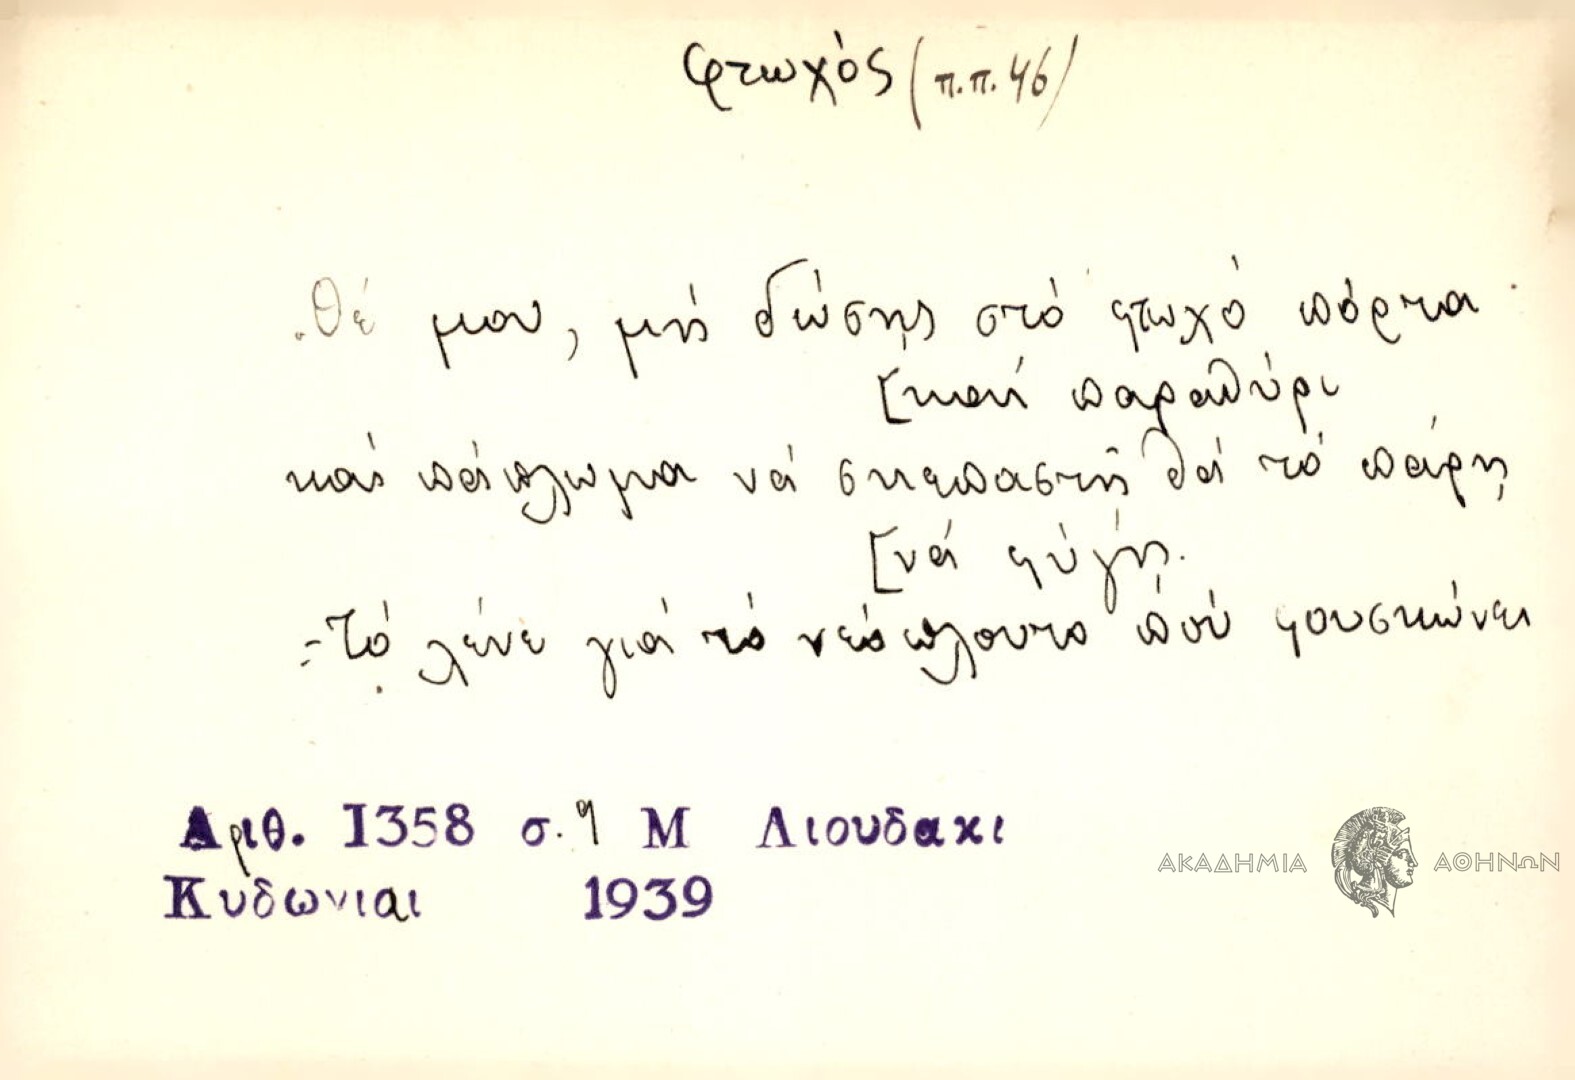 φτωχὸς (π.π. 46)
Θέ μου, μὴ δώσῃς στὸ φτωχὸ πόρτα
[καὶ παραθύρι
καὶ πάπλωμα νὰ σκεπαστῇ θὰ τὸ πάρῃ
[νὰ φύγῃ.
=Τὸ λένε γιὰ τὸ νεόπλουτο ποὺ φουσκώνει
Αριθ. 1358 σ. 9 Μ Λιουδακι
Κυδωνιαι 1939
ΑΚΑΔΗΜΙΑ ΑΘΗΝΩΝ